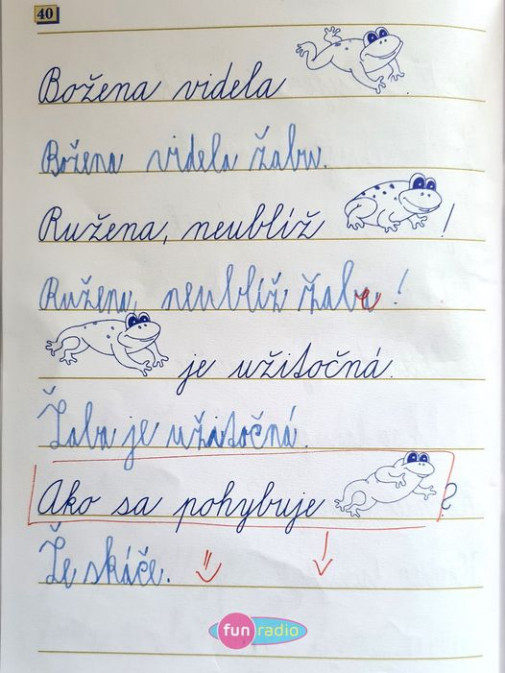 40
Božena videla
Božena videla žabu.
Ružena, neublíž !
Ružena, neublíž žabe !
je užitočná.
Žaba je užitočná.
Ako sa pohybuje ?
Že skáče.
fun radio